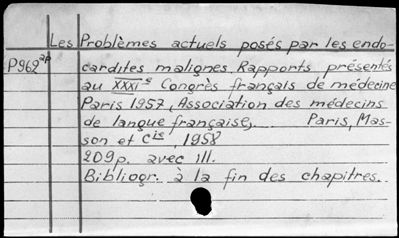 Les Problèmes actuels posés par les endo-
P962ap cardites malignes. Rapports présentés
au XXXIe Congrès français de médecine
Paris 1957, Association des médecins
de langue française, Paris, Mas-
son et Cie, 1958
209p. avec ill.
Bibliogr. à la fin des chapitres.